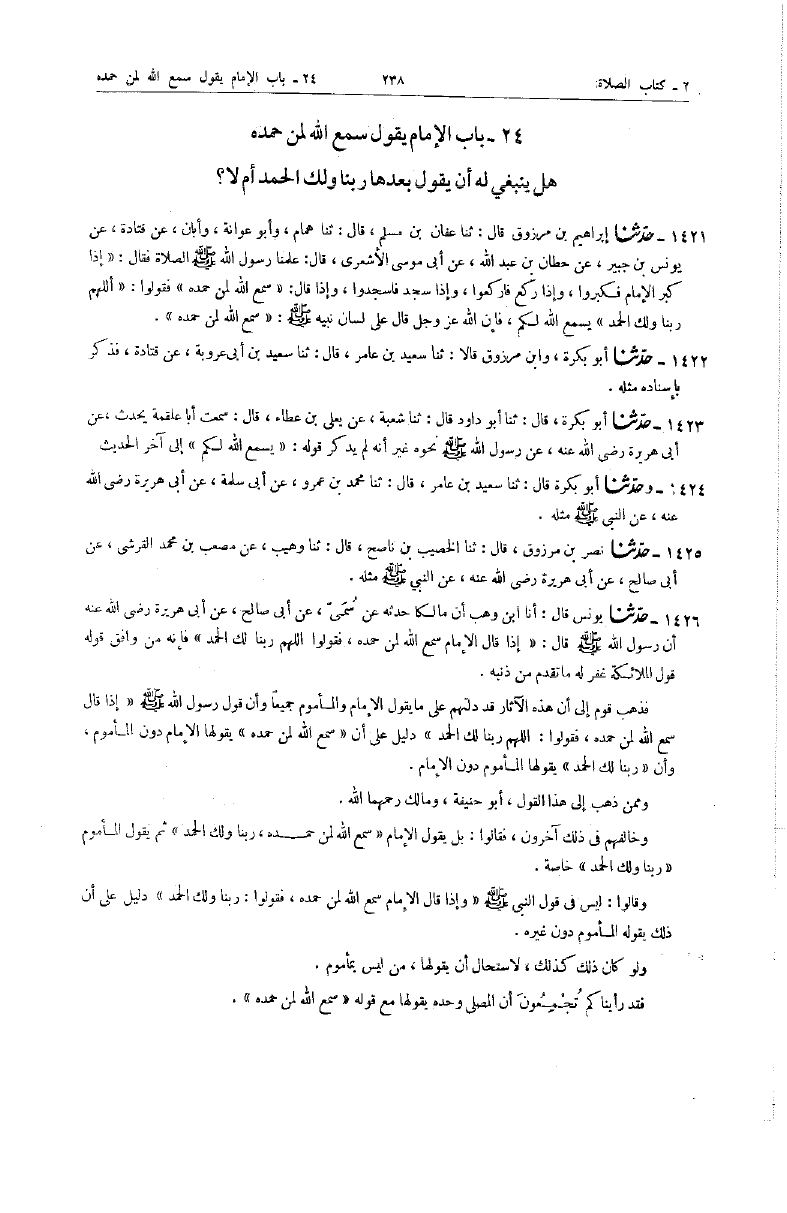 ٢ ـ كتاب الصلاة
٢٣٨
٢٤ ـ باب الإمام يقول سمع الله لمن حمده
٢٤ ـ باب الإمام يقول سمع الله لمن حمده
هل ينبغي له أن يقول بعدها ربنا ولك الحمد أم لا؟
١٤٢١ ـ حدّثنا إبراهيم بن مرزوق قال : ثنا عفان بن مسلم ، قال : ثنا همام ، وأبو عوانة ، وأبان ، عن قتادة ، عن
يونس بن جبير ، عن حطان بن عبد الله ، عن أبى موسى الأشعرى ، قال: علمنا رسول الله ﷺ الصلاة فقال : « إذا
كبر الإمام فكبروا ، وإذا ركع فاركعوا ، وإذا سجد فاسجدوا ، وإذا قال: « سمع الله لمن حمده » فقولوا : « أللهم
ربنا ولك الحمد » يسمع الله لكم ، فإن الله عز وجل قال على لسان نبيه ﷺ : « سمع الله لمن حمده » .
١٤٢٢ ـ حدّثنا أبو بكرة ، وابن مرزوق قالا : ثنا سعيد بن عامر ، قال : ثنا سعيد بن أبى عروبة ، عن قتادة ، فذكر
بإسناده مثله .
١٤٢٣ ـ حدّثنا أبو بكرة ، قال : ثنا أبو داود قال : ثنا شعبة ، عن يعلى بن عطاء ، قال : سمعت أبا علقمة يحدث ،عن
أبى هريرة رضى الله عنه ، عن رسول الله ﷺ نحوه غير أنه لم يذكر قوله : « يسمع الله لكم » إلى آخر الحديث
١٤٢٤ ـ وحدّثنا أبو بكرة قال : ثنا سعيد بن عامر ، قال : ثنا محمد بن عمرو ، عن أبى سلمة ، عن أبى هريرة رضى الله
عنه ، عن النبي ﷺ مثله .
١٤٢٥ ـ حدّثنا نصر بن مرزوق ، قال : ثنا الخصيب بن ناصح ، قال : ثنا وهيب ، عن مصعب بن محمد القرشى ، عن
أبى صالح ، عن أبى هريرة رضى الله عنه ، عن النبي ﷺ مثله .
١٤٢٦ ـ حدّثنا يونس قال : أنا ابن وهب أن مالكا حدثه عن سُمَىّ ، عن أبى صالح ، عن أبى هريرة رضى الله عنه
أن رسول الله ﷺ قال : « إذا قال الإمام سمع الله لمن حمده ، فقولوا اللهم ربنا لك الحمد » فإنه من وافق قوله
قول الملائكة غفر له ماتقدم من ذنبه .
فذهب قوم إلى أن هذه الآثار قد دلتهم على مايقول الإمام والمأموم جميعاً وأن قول رسول الله ﷺ « إذا قال
سمع الله لمن حمده ، فقولوا : اللهم ربنا لك الحمد » دليل على أن « سمع الله لمن حمده » يقولها الإمام دون المأموم ،
وأن « ربنا لك الحمد » يقولها المأموم دون الإمام .
وممن ذهب إلى هذا القول ، أبو حنيفة ، ومالك رحمهما الله .
وخالفهم فى ذلك آخرون ، فقالوا : بل يقول الإمام « سمع الله لمن حمده ، ربنا ولك الحمد » ثم يقول المأموم
« ربنا ولك الحمد » خاصة .
وقالوا : ليس فى قول النبي ﷺ « وإذا قال الإمام سمع الله لمن حمده ، فقولوا : ربنا ولك الحمد » دليل على أن
ذلك يقوله المأموم دون غيره .
ولو كان ذلك كذلك ، لاستحال أن يقولها ، من ليس بمأموم .
فقد رأيناكم تُجْمِعُونَ أن المصلى وحده يقولها مع قوله « سمع الله لمن حمده » .